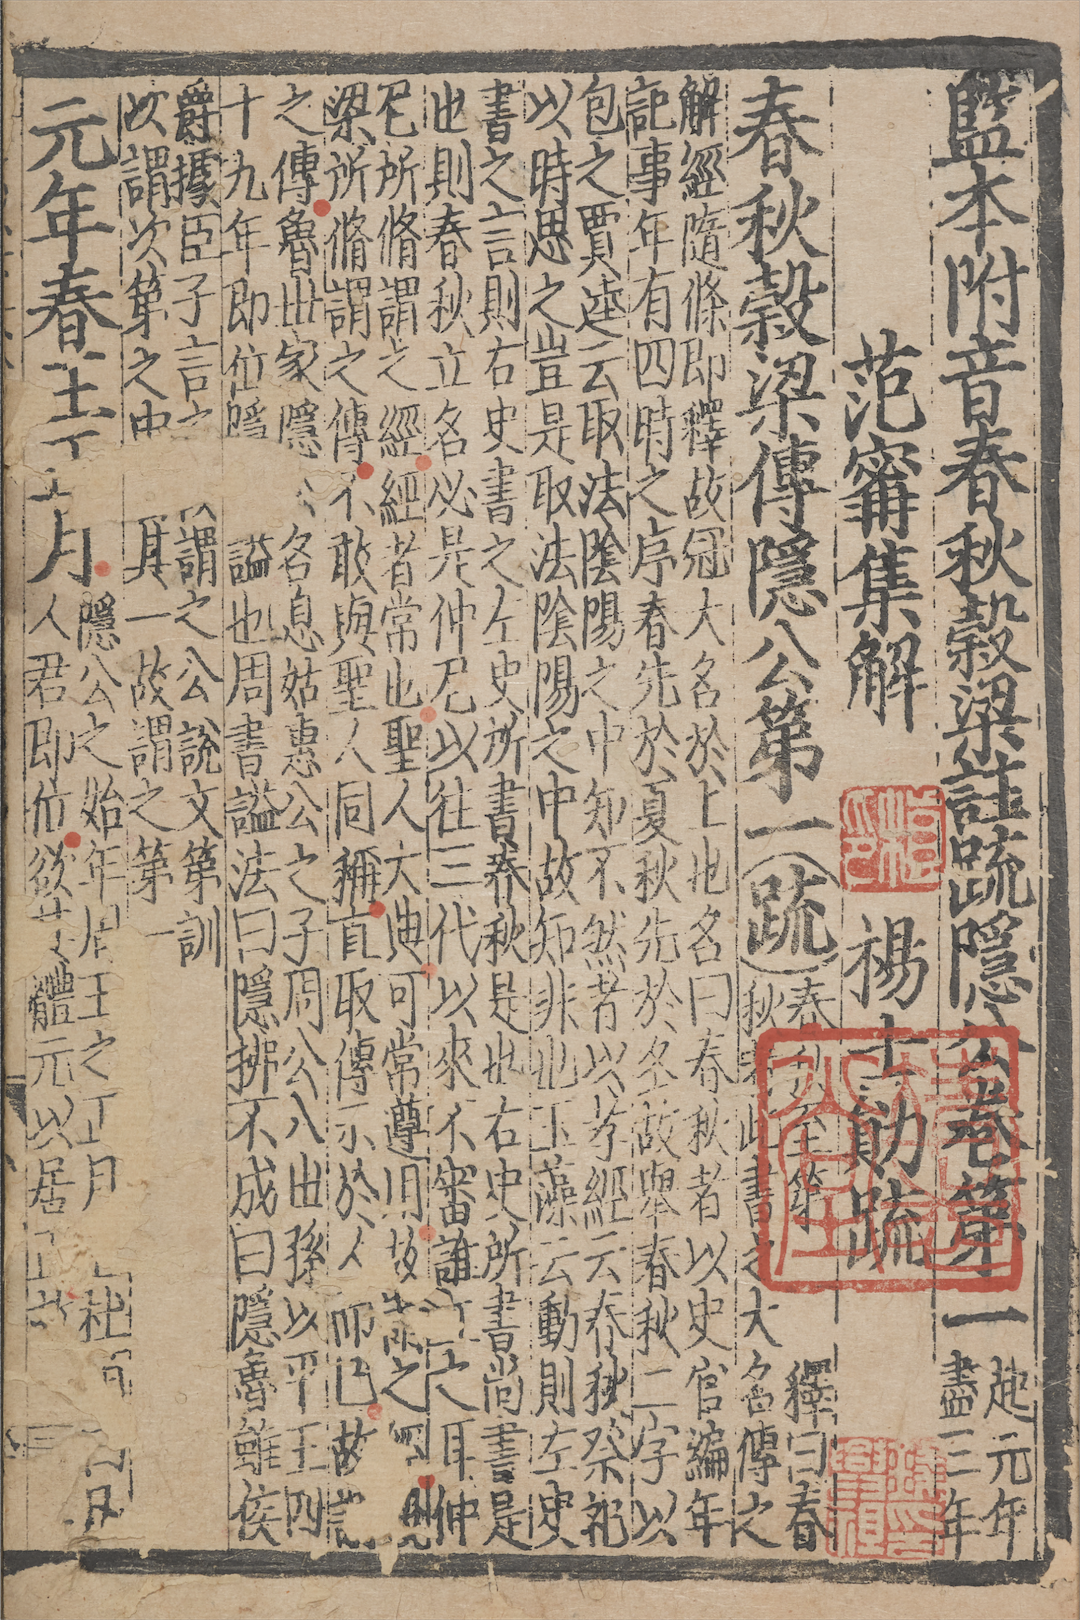 監本附音春秋穀梁註疏隱公卷第一
起元年
盡三年
范甯集解　楊士勛疏
春秋穀梁傳隱公第一疏
春秋至第　釋曰春
秋者此書之大名傳之
解經隨條即釋故冠大名於上也名曰春秋者以史官編年
記事年有四時之序春先於夏秋先於冬故舉春秋二字以
包之賈逵云取法陰陽之中知不然者以孝經云春秋祭祀
以時思之豈是取法陰陽之中故知非也玉藻云動則左史
書之言則右史書之左史所書春秋是也右史所書尚書是
也則春秋立名必是仲尼以往三代以來不審誰立之耳仲
尼所脩謂之經經者常也聖人大典可常遵用故謂之經
梁所脩謂之傳不敢與聖人同稱直取傳示於人而已故謂
之傳魯世家隱名息姑惠公之子周公八世孫以平王四
十九年即位隱謚也周書謚法曰隱拂不成曰隱魯雖侯
爵據臣子言之謂之公說文第訓
次謂次第之中其一故謂之第一
元年春王正月
隱公之始年周王之正月
人君即位欲其體元以居正故